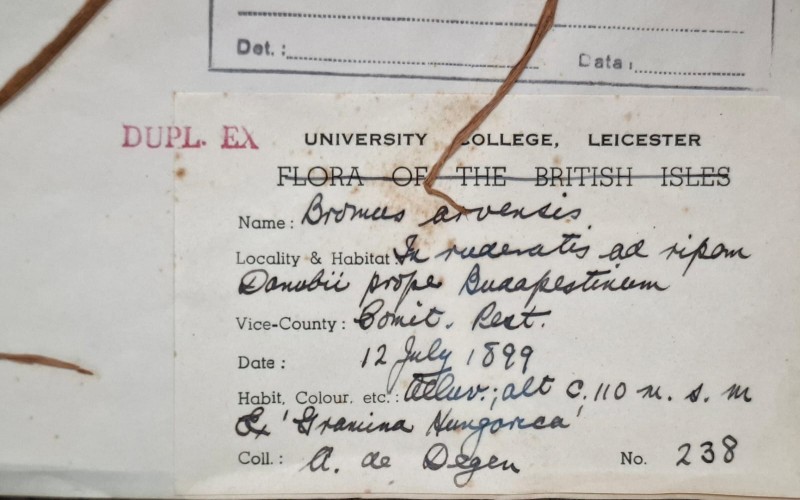 Det.: Data:
DUPL. EX
UNIVERSITY COLLEGE, LEICESTER
FLORA OF THE BRITISH ISLES
Name: Bromus arvensis
Locality & Habitat: In ruderatis ad ripam
Danubii prope Budapestinum
Vice-County: Comit. Pest.
Date: 12 July 1899
Habit, Colour. etc.: Alluv.; alt c. 110 m. s. m
Ex 'Gramina Hungarica'
Coll.: A. de Degen No. 238